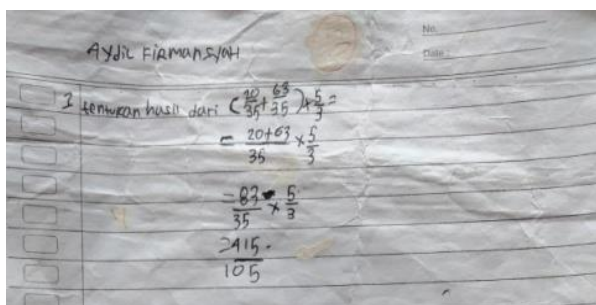 No.
Date:
Aydil Firmansyah
1 tentukan hasil dari (20/35 + 63/35) × 5/3 =
= 20+63/35 × 5/3
= 83/35 × 5/3
= 415/105